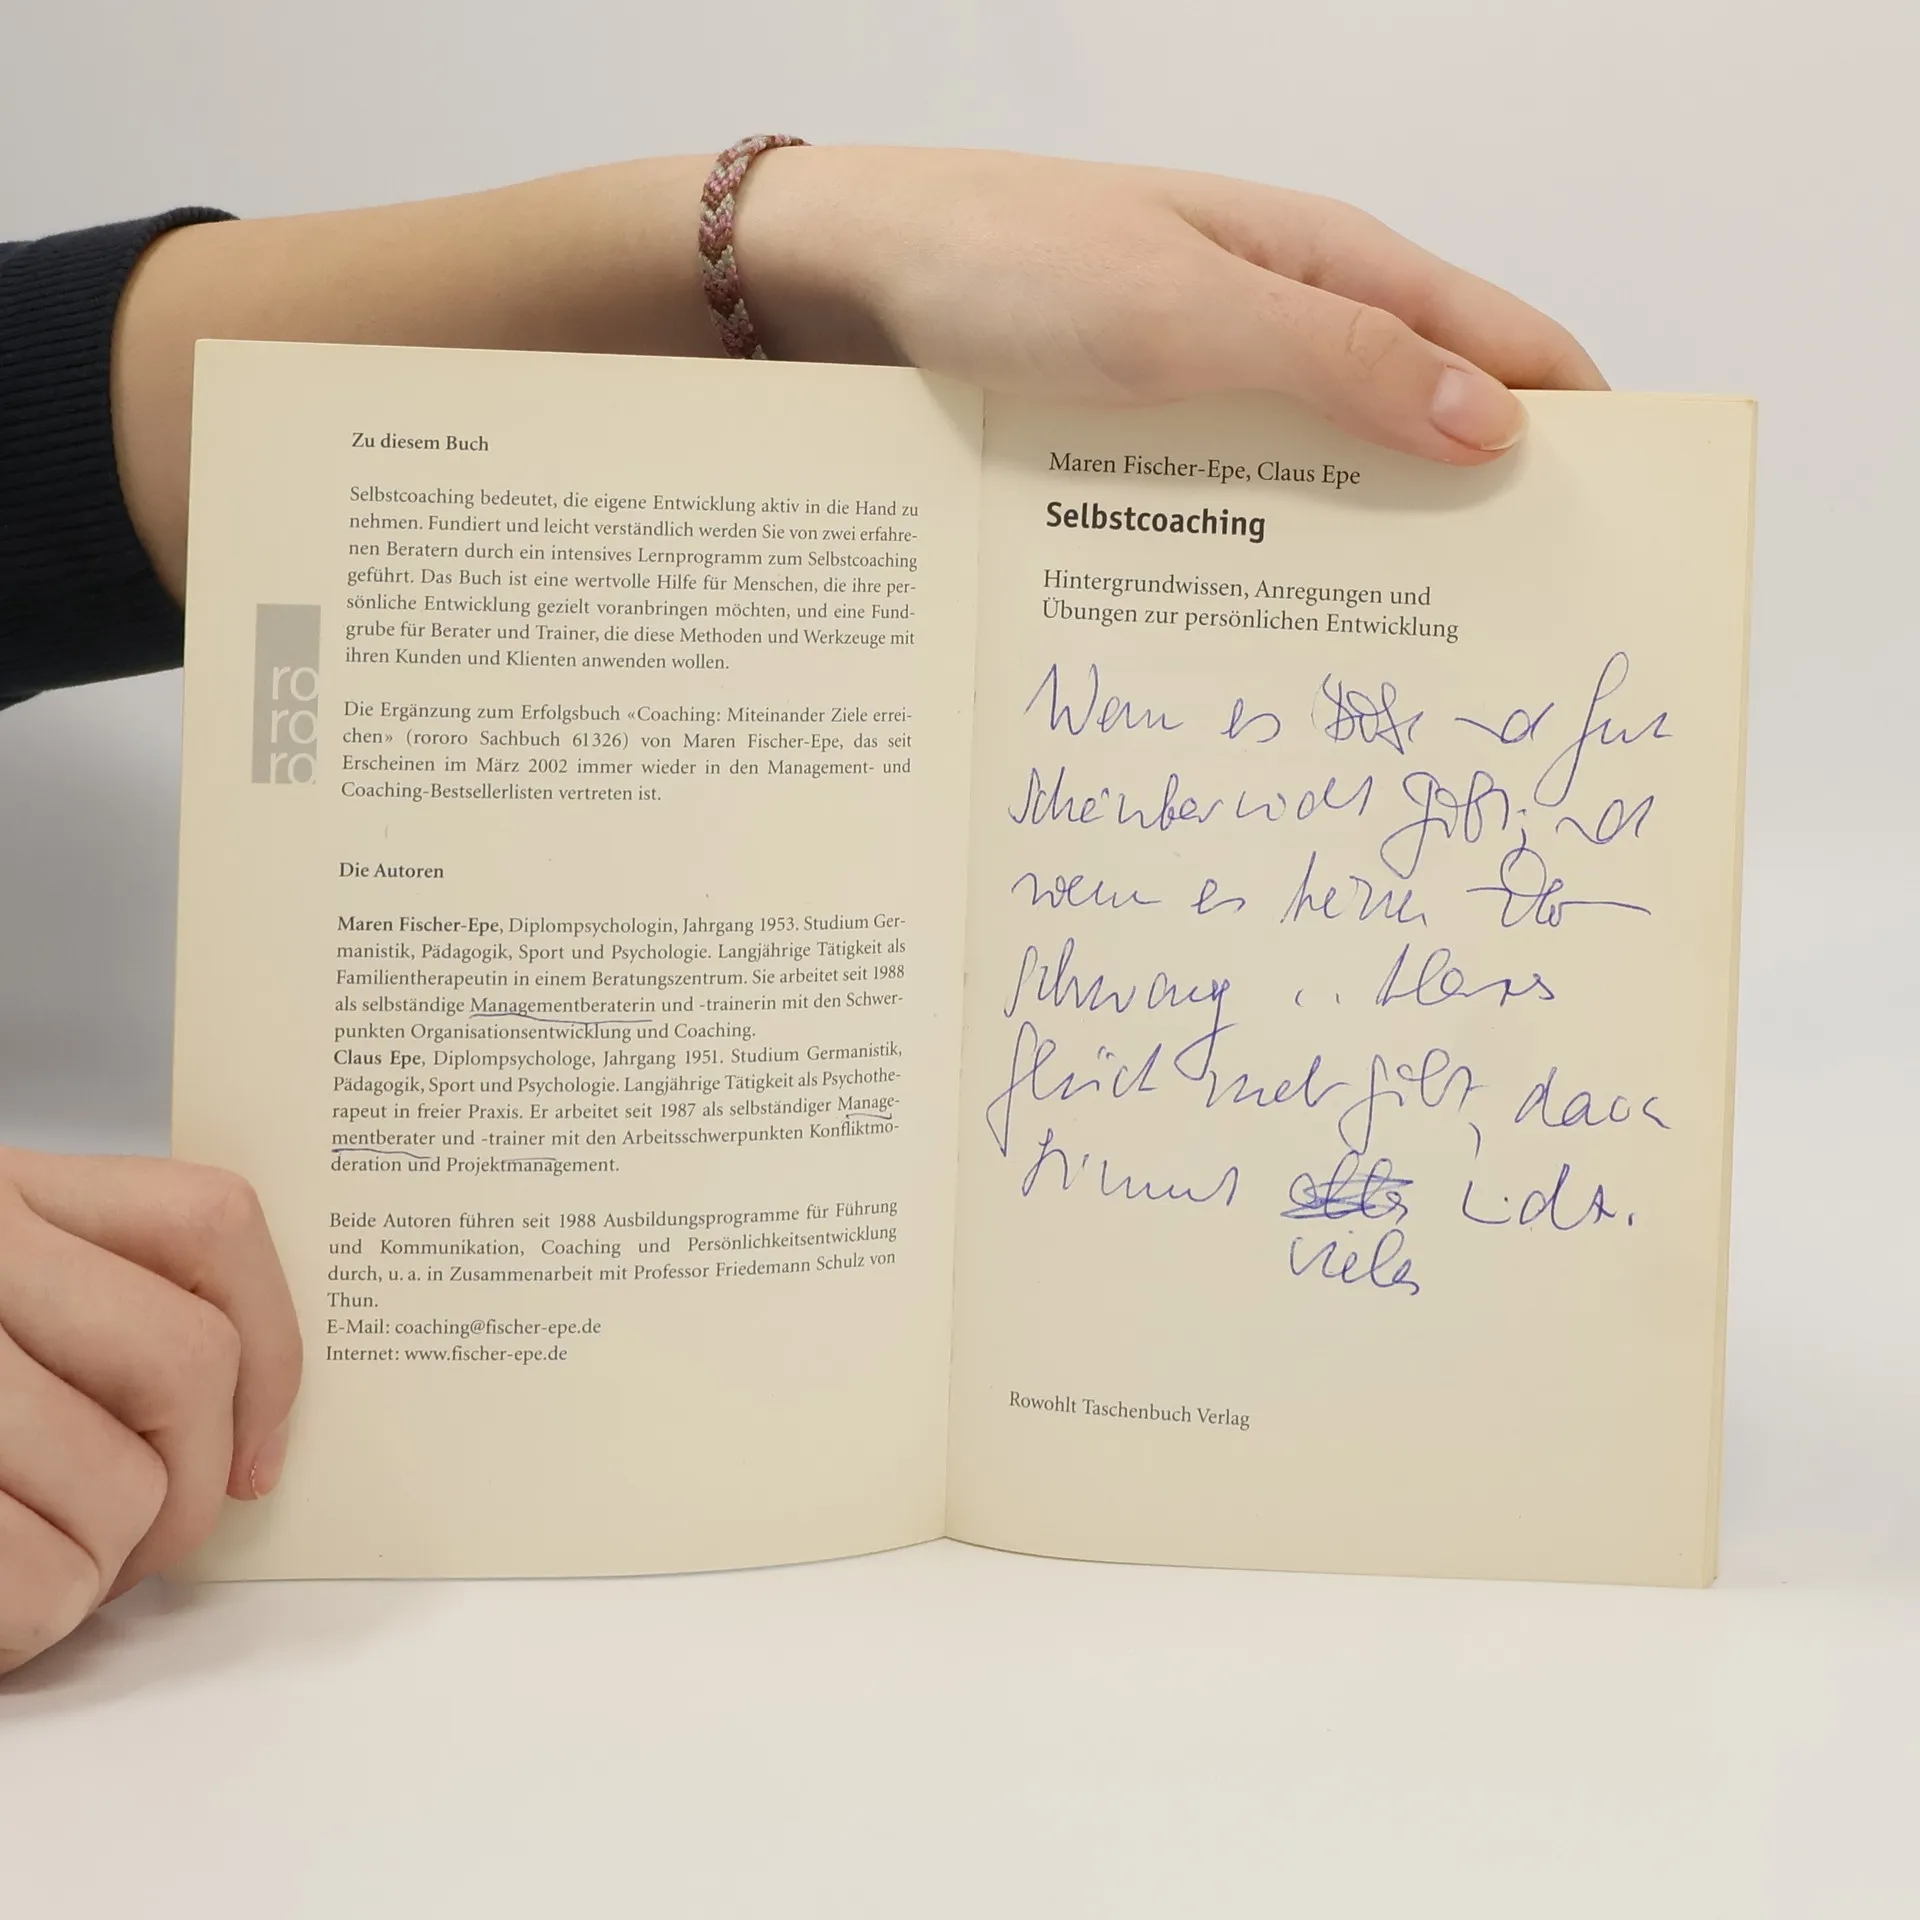 Zu diesem Buch
Selbstcoaching bedeutet, die eigene Entwicklung aktiv in die Hand zu
nehmen. Fundiert und leicht verständlich werden Sie von zwei erfahre-
nen Beratern durch ein intensives Lernprogramm zum Selbstcoaching
geführt. Das Buch ist eine wertvolle Hilfe für Menschen, die ihre per-
sönliche Entwicklung gezielt voranbringen möchten, und eine Fund-
grube für Berater und Trainer, die diese Methoden und Werkzeuge mit
ihren Kunden und Klienten anwenden wollen.
Die Ergänzung zum Erfolgsbuch «Coaching: Miteinander Ziele errei-
chen» (rororo Sachbuch 61326) von Maren Fischer-Epe, das seit
Erscheinen im März 2002 immer wieder in den Management- und
Coaching-Bestsellerlisten vertreten ist.
ro
ro
ro
Die Autoren
Maren Fischer-Epe, Diplompsychologin, Jahrgang 1953. Studium Ger-
manistik, Pädagogik, Sport und Psychologie. Langjährige Tätigkeit als
Familientherapeutin in einem Beratungszentrum. Sie arbeitet seit 1988
als selbständige Managementberaterin und -trainerin mit den Schwer-
punkten Organisationsentwicklung und Coaching.
Claus Epe, Diplompsychologe, Jahrgang 1951. Studium Germanistik,
Pädagogik, Sport und Psychologie. Langjährige Tätigkeit als Psychothe-
rapeut in freier Praxis. Er arbeitet seit 1987 als selbständiger Manage-
mentberater und -trainer mit den Arbeitsschwerpunkten Konfliktmo-
deration und Projektmanagement.
Beide Autoren führen seit 1988 Ausbildungsprogramme für Führung
und Kommunikation, Coaching und Persönlichkeitsentwicklung
durch, u. a. in Zusammenarbeit mit Professor Friedemann Schulz von
Thun.
E-Mail: coaching@fischer-epe.de
Internet: www.fischer-epe.de
Maren Fischer-Epe, Claus Epe
Selbstcoaching
Hintergrundwissen, Anregungen und
Übungen zur persönlichen Entwicklung
Wenn es und gut
scheinbar nicht gibt, und
wenn es keinen
gibt, dann
stimmt nicht.
vieles
Rowohlt Taschenbuch Verlag